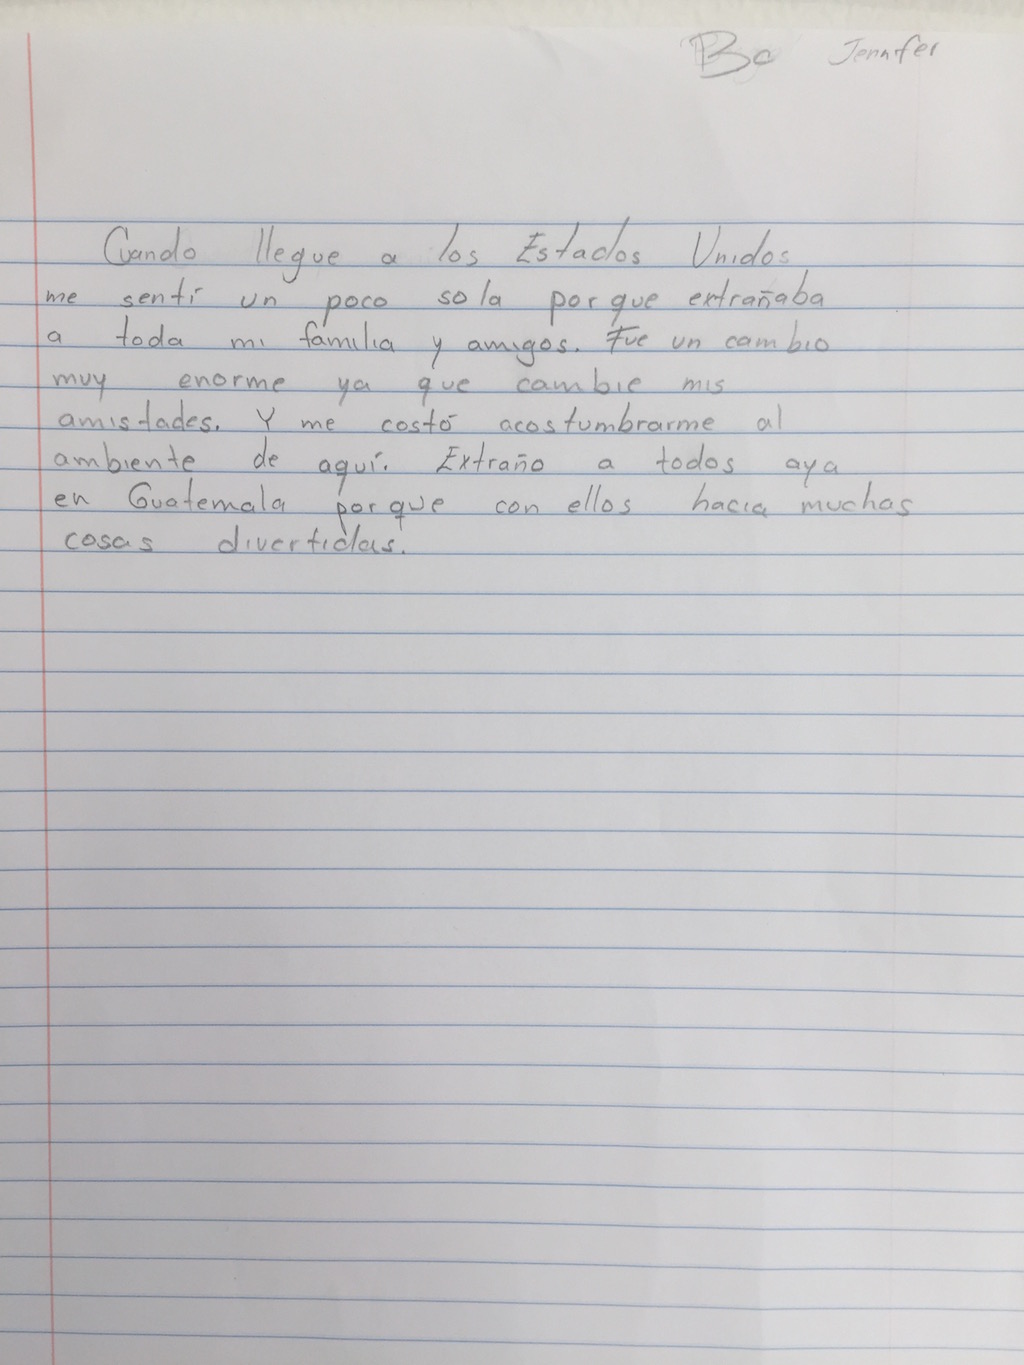 Bc Jennifer
Cuando llegue a los Estados Unidos
me sentí un poco sola porque extrañaba
a toda mi familia y amigos. Fue un cambio
muy enorme ya que cambie mis
amistades. Y me costó acostumbrarme al
ambiente de aquí. Extraño a todos aya
en Guatemala porque con ellos hacia muchas
cosas divertidas.